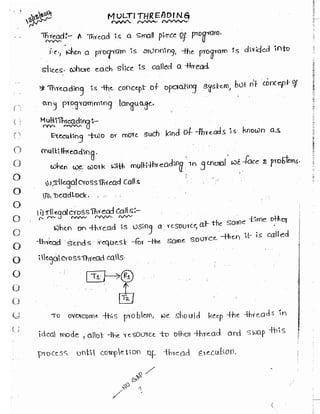 MULTITHREADING
Thread:- A Thread is a small piece of program.
i.e., when a program is running, the program is divided into
slices. where each slice is called a thread.
* Threading is the concept of operating system, but n't concept of
any programming language.
MultiThreading:-
Executing two or more such kind of threads is known as
multithreading.
when we work with multithreading in general we face 2 problems.
(i) Illegal Cross Thread Calls
(ii) DeadLock.
(i) Illegal Cross Thread Calls:-
When on thread is using a resource, at the same time other
thread sends request for the same source then it is called
illegal Cross Thread calls.
T1 R1
T2
To overcome this problem, we should keep the threads in
ideal mode, allot the resource to other thread and swap this
process until completion of thread execution.
NO GAP
?